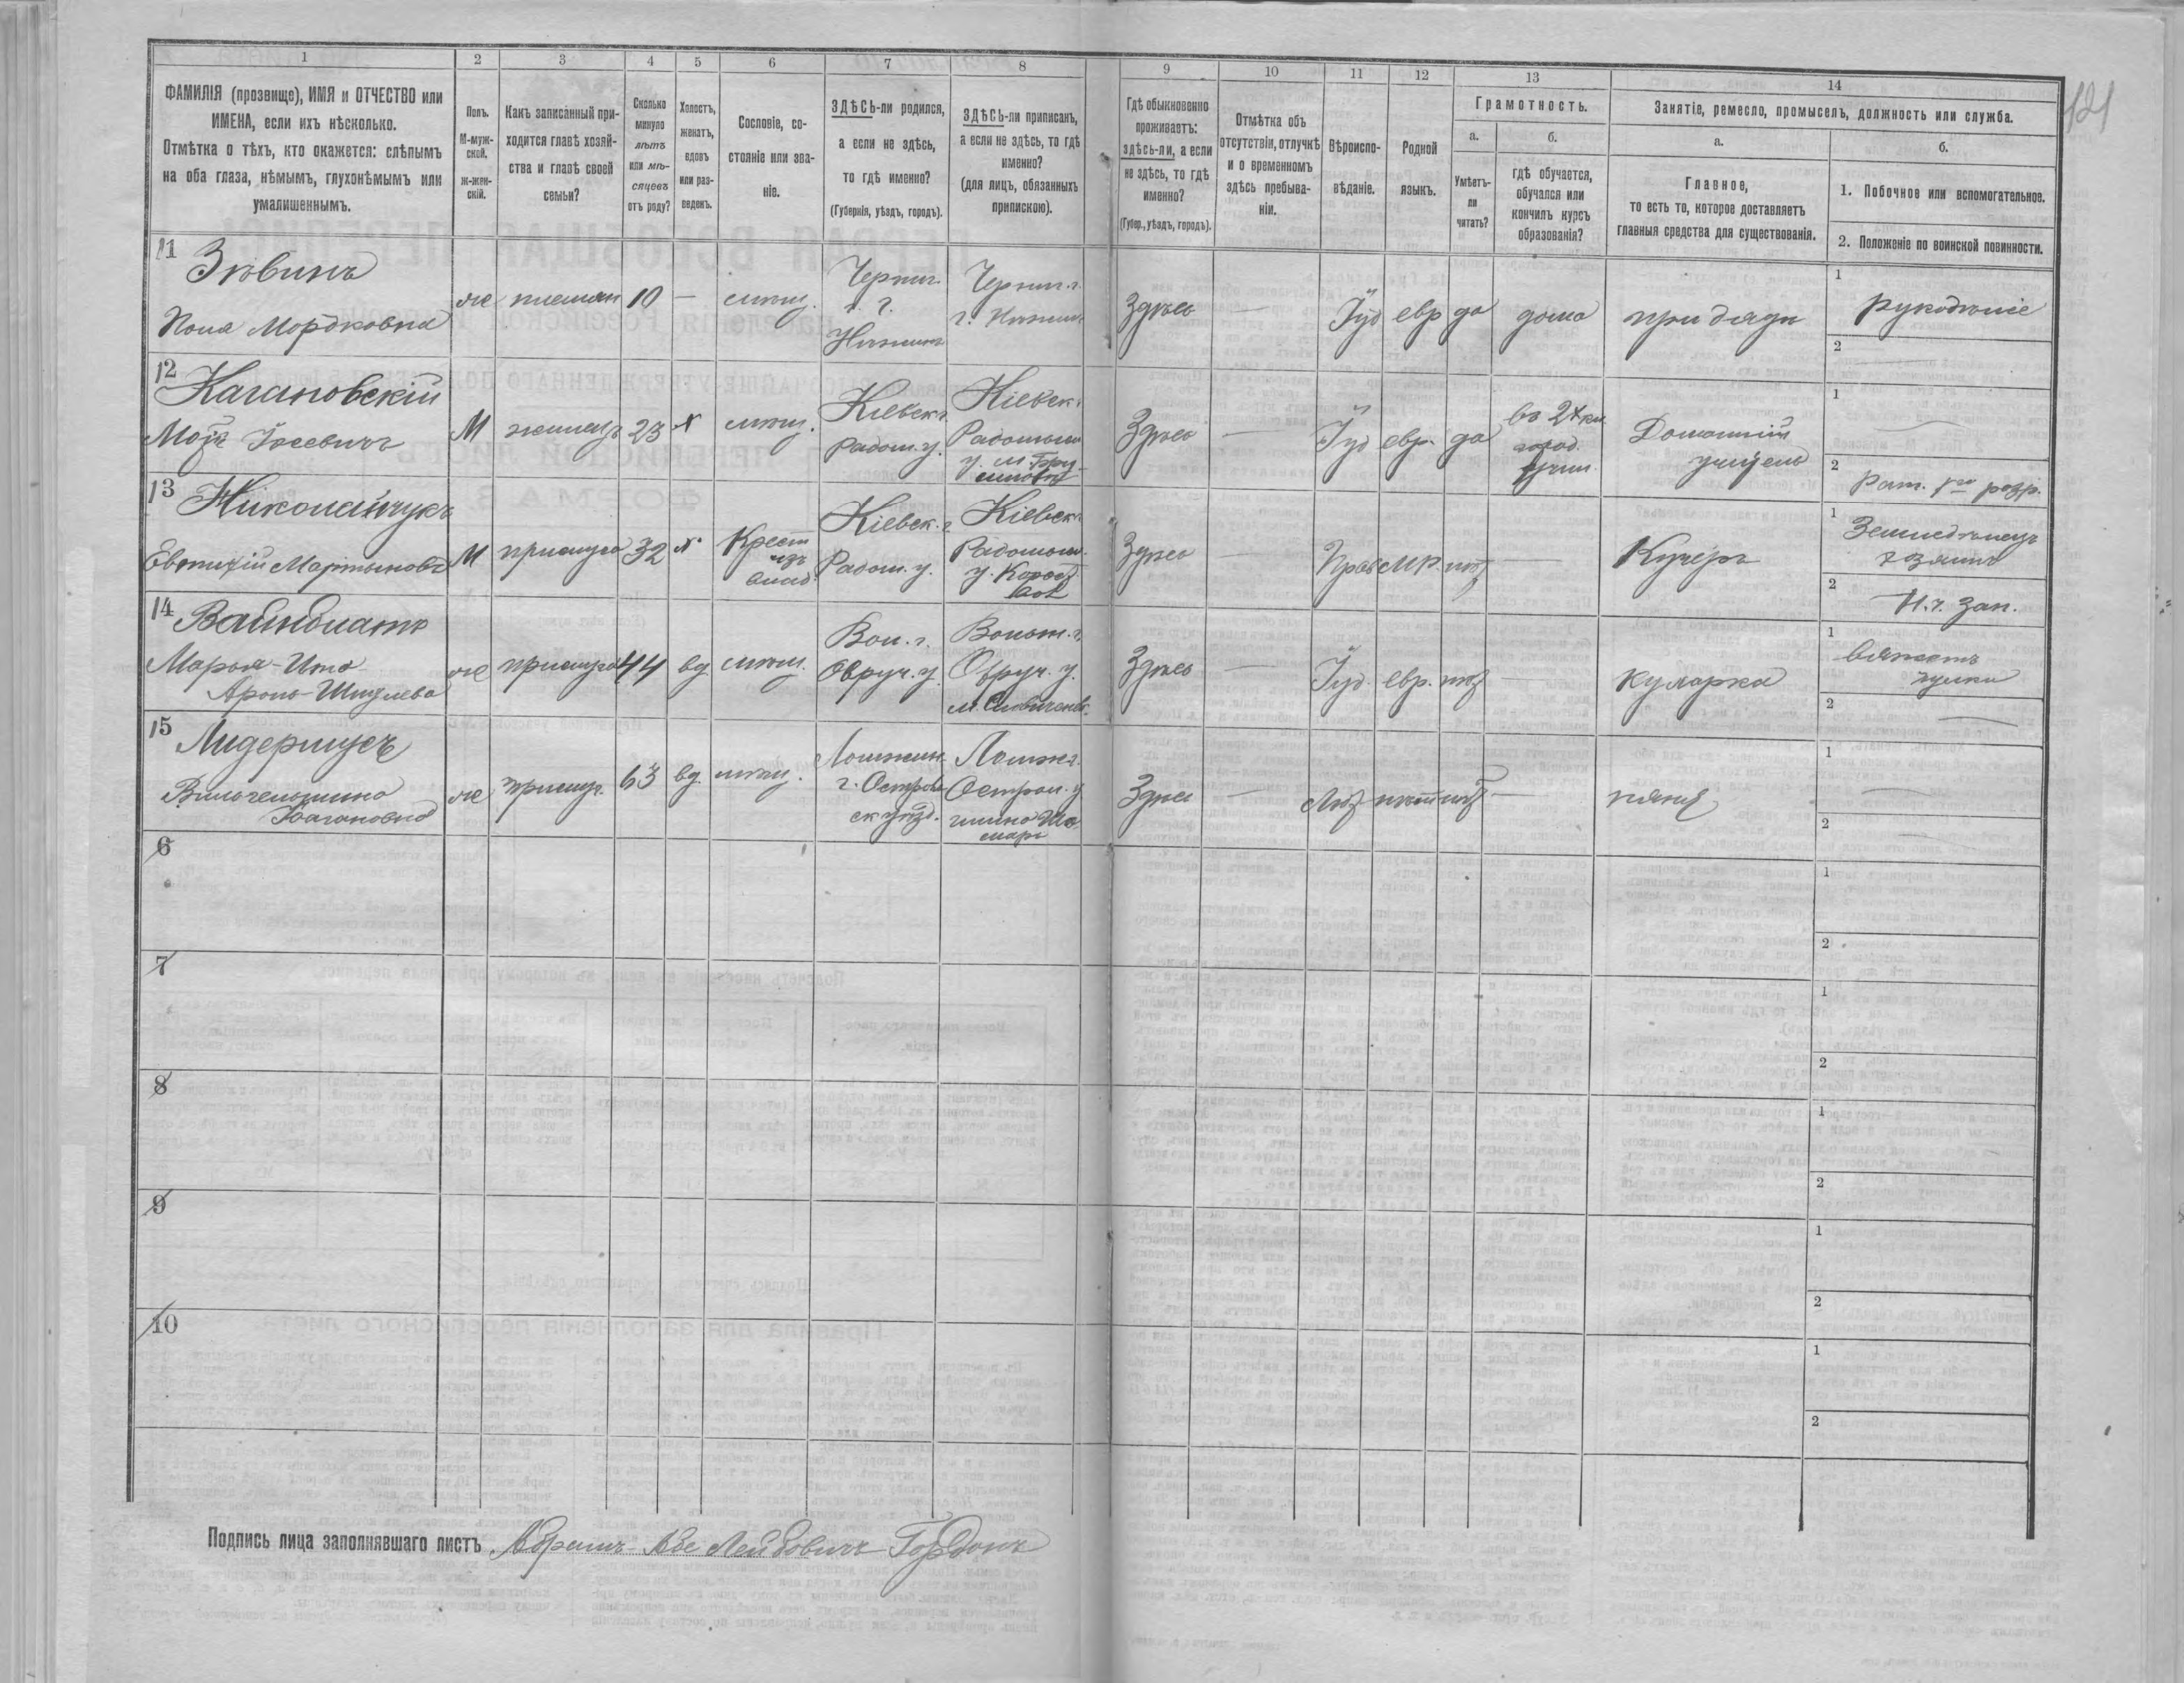 121
1
ФАМИЛІЯ (прозвище), ИМЯ и ОТЧЕСТВО или
ИМЕНА, если ихъ нѣсколько.
Отмѣтка о тѣхъ, кто окажется: слѣпымъ
на оба глаза, нѣмымъ, глухонѣмымъ или
умалишеннымъ.
2
Полъ.
М-муж-
ской.
ж-жен-
скій.
3
Какъ записанный при-
ходится главѣ хозяй-
ства и главѣ своей
семьи?
4
Сколько
минуло
лѣтъ
или мѣ-
сяцевъ
отъ роду?
5
Холостъ,
женатъ,
вдовъ
или раз-
веденъ.
6
Сословіе, со-
стояніе или зва-
ніе.
7
ЗДѢСЬ-ли родился,
а если не здѣсь,
то гдѣ именно?
(Губернія, уѣздъ, городъ).
8
ЗДѢСЬ-ли приписанъ,
а если не здѣсь, то гдѣ
именно?
(для лицъ, обязанныхъ
припискою).
9
Гдѣ обыкновенно
проживаетъ:
здѣсь-ли, а если
не здѣсь, то гдѣ
именно?
(Губер., уѣздъ, городъ).
10
Отмѣтка объ
отсутствіи, отлучкѣ
и о временномъ
здѣсь пребыва-
ніи.
11
Вѣроиспо-
вѣданіе.
12
Родной
языкъ.
13
Грамотность.
а.
Умѣетъ-
ли
читать?
б.
гдѣ обучается,
обучался или
кончилъ курсъ
образованія?
14
Занятіе, ремесло, промыселъ, должность или служба.
а.
Главное,
то есть то, которое доставляетъ
главныя средства для существованія.
б.
1. Побочное или вспомогательное.
2. Положеніе по воинской повинности.
11
Мордковна
же
племян
10
—
мѣщ.
Черниг.
г.
Нѣжинъ
Черниг. г.
г. Нѣжин
Здѣсь
—
Іуд
евр
да
дома
при дядѣ
1
рукодѣліе
2
12
Кагановскій
Іосевичъ
М
жилецъ
23
х
мѣщ.
Кіевск.
Радом. у.
Кіевск.
Радомысл
у. м. Бру-
силовъ
Здѣсь
—
Іуд
евр.
да
въ 2х кл
город.
учил.
Домашній
учитель
1
—
2
Рат. 1го разр.
13
Николайчукъ
Евтихій Мартыновъ
М
прислуга
32
Крест
изъ
влад.
Кіевск. г.
Радом. у.
Кіевск.
Радомысл.
у.
Здѣсь
Прав
м.р.
нѣт
—
Кучеръ
1
Земледѣлецъ
хозяинъ
2
Н. ч. зап.
14
Вайнблатъ
Марья-Ита
Аронъ-Шмулева
же
прислуга
44
вд.
мѣщ.
Вол. г.
Овруч. у.
Волын. г.
Овруч. у.
м. Словечанск.
Здѣсь
—
Іуд.
евр.
нѣт
—
кухарка
1
вяжетъ
чулки
2
—
15
же
прислуг.
63
вд.
мѣщ.
Ломжин.
г. Остров
ск уѣзд.
Ломж. г.
Остров. у
гмина
Здѣсь
—
Лют
нѣм
нѣт
—
няня
1
—
2
—
6
1
2
7
1
2
8
1
2
9
1
2
10
1
2
Подпись лица заполнявшаго листъ Абрамъ-Абе Лейбовичъ Гордонъ